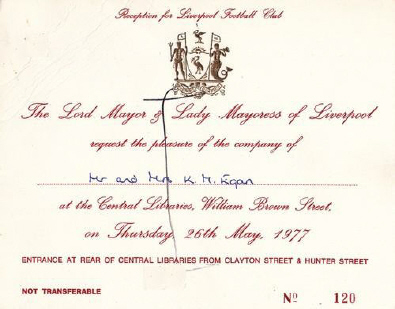 Reception for Liverpool Football Club
The Lord Mayor & Lady Mayoress of Liverpool
request the pleasure of the company of
Mr and Mrs K. M. Egan
at the Central Libraries, William Brown Street,
on Thursday, 26th May, 1977
ENTRANCE AT REAR OF CENTRAL LIBRARIES FROM CLAYTON STREET & HUNTER STREET
NOT TRANSFERABLE
No 120